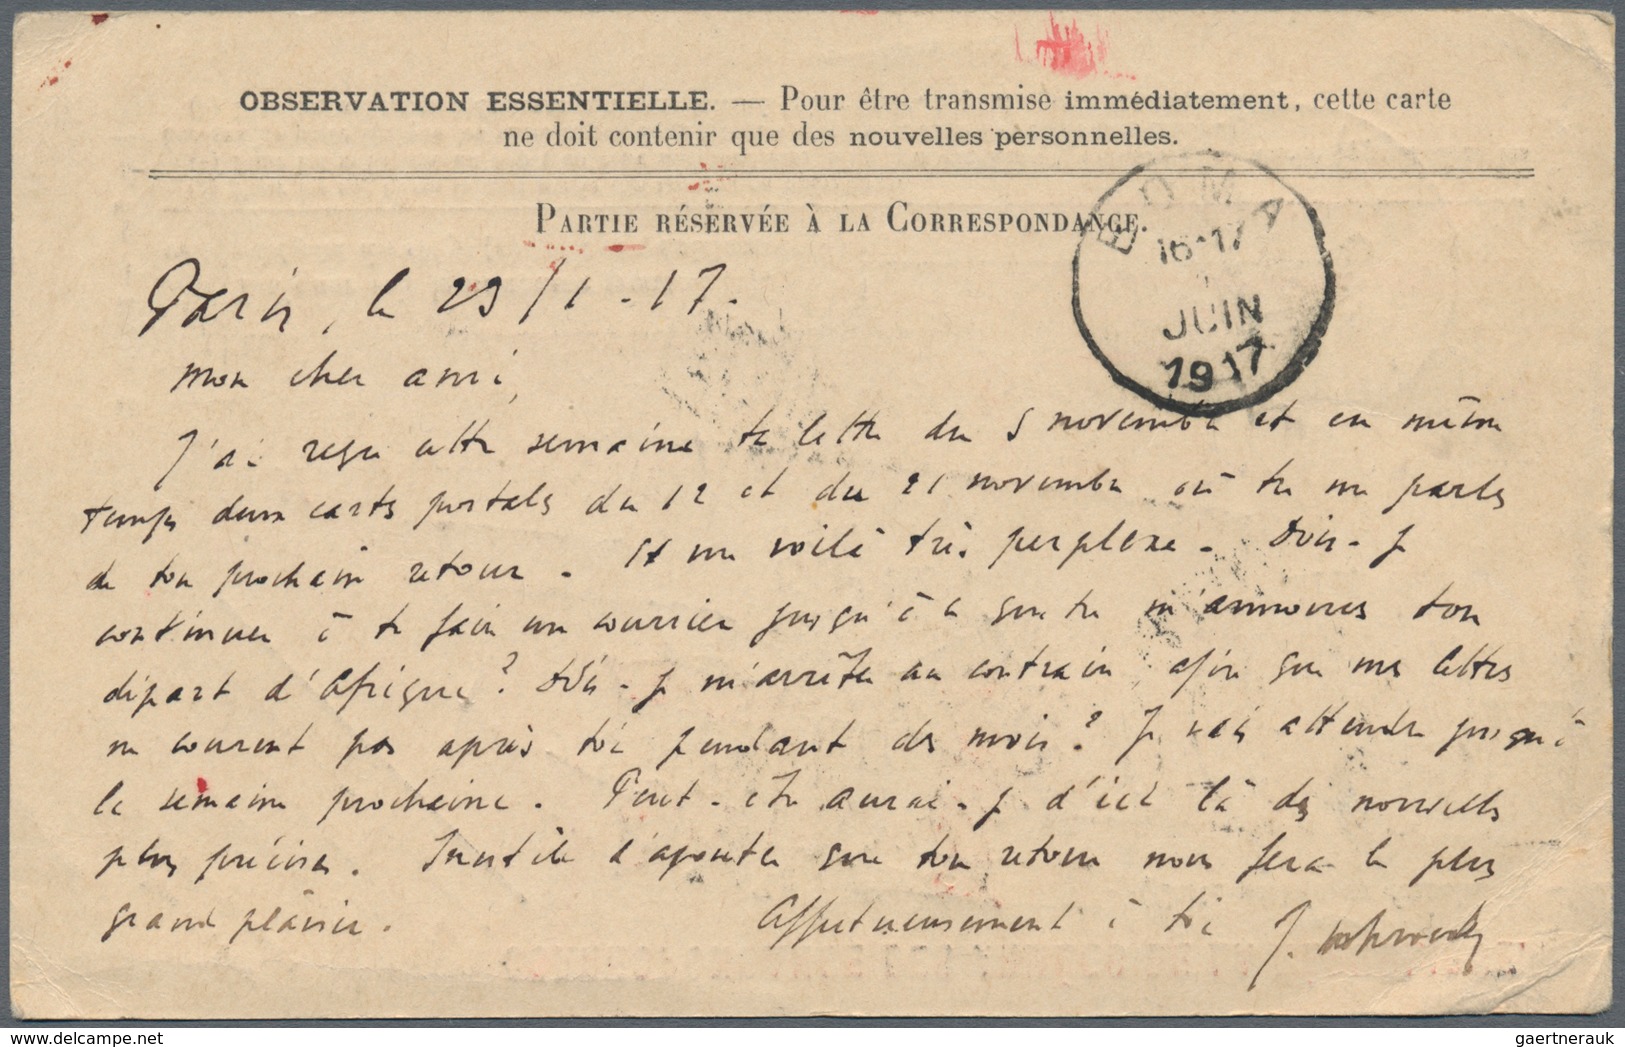 OBSERVATION ESSENTIELLE. — Pour être transmise immédiatement, cette carte
ne doit contenir que des nouvelles personnelles.
PARTIE RÉSERVÉE À LA CORRESPONDANCE.
BOMA
16-17
JUIN
1917
Paris, le 29/1-17.
Mon cher ami,
J'ai reçu cette semaine ta lettre du 5 novembre et en même
temps deux cartes postales du 12 et du 21 novembre où tu me parles
de ton prochain retour. Et me voilà très perplexe. Dois-je
continuer à te faire un courrier jusqu'à ce que tu m'annonces ton
départ d'Afrique? Dois-je m'arrêter au contraire, afin que mes lettres
ne courent pas après toi pendant des mois? Je vais attendre jusqu'à
la semaine prochaine. Peut-être aurai-je d'ici là des nouvelles
plus précises. Inutile d'ajouter que ton retour nous fera le plus
grand plaisir. Affectueusement à toi J.
gaertnerauk